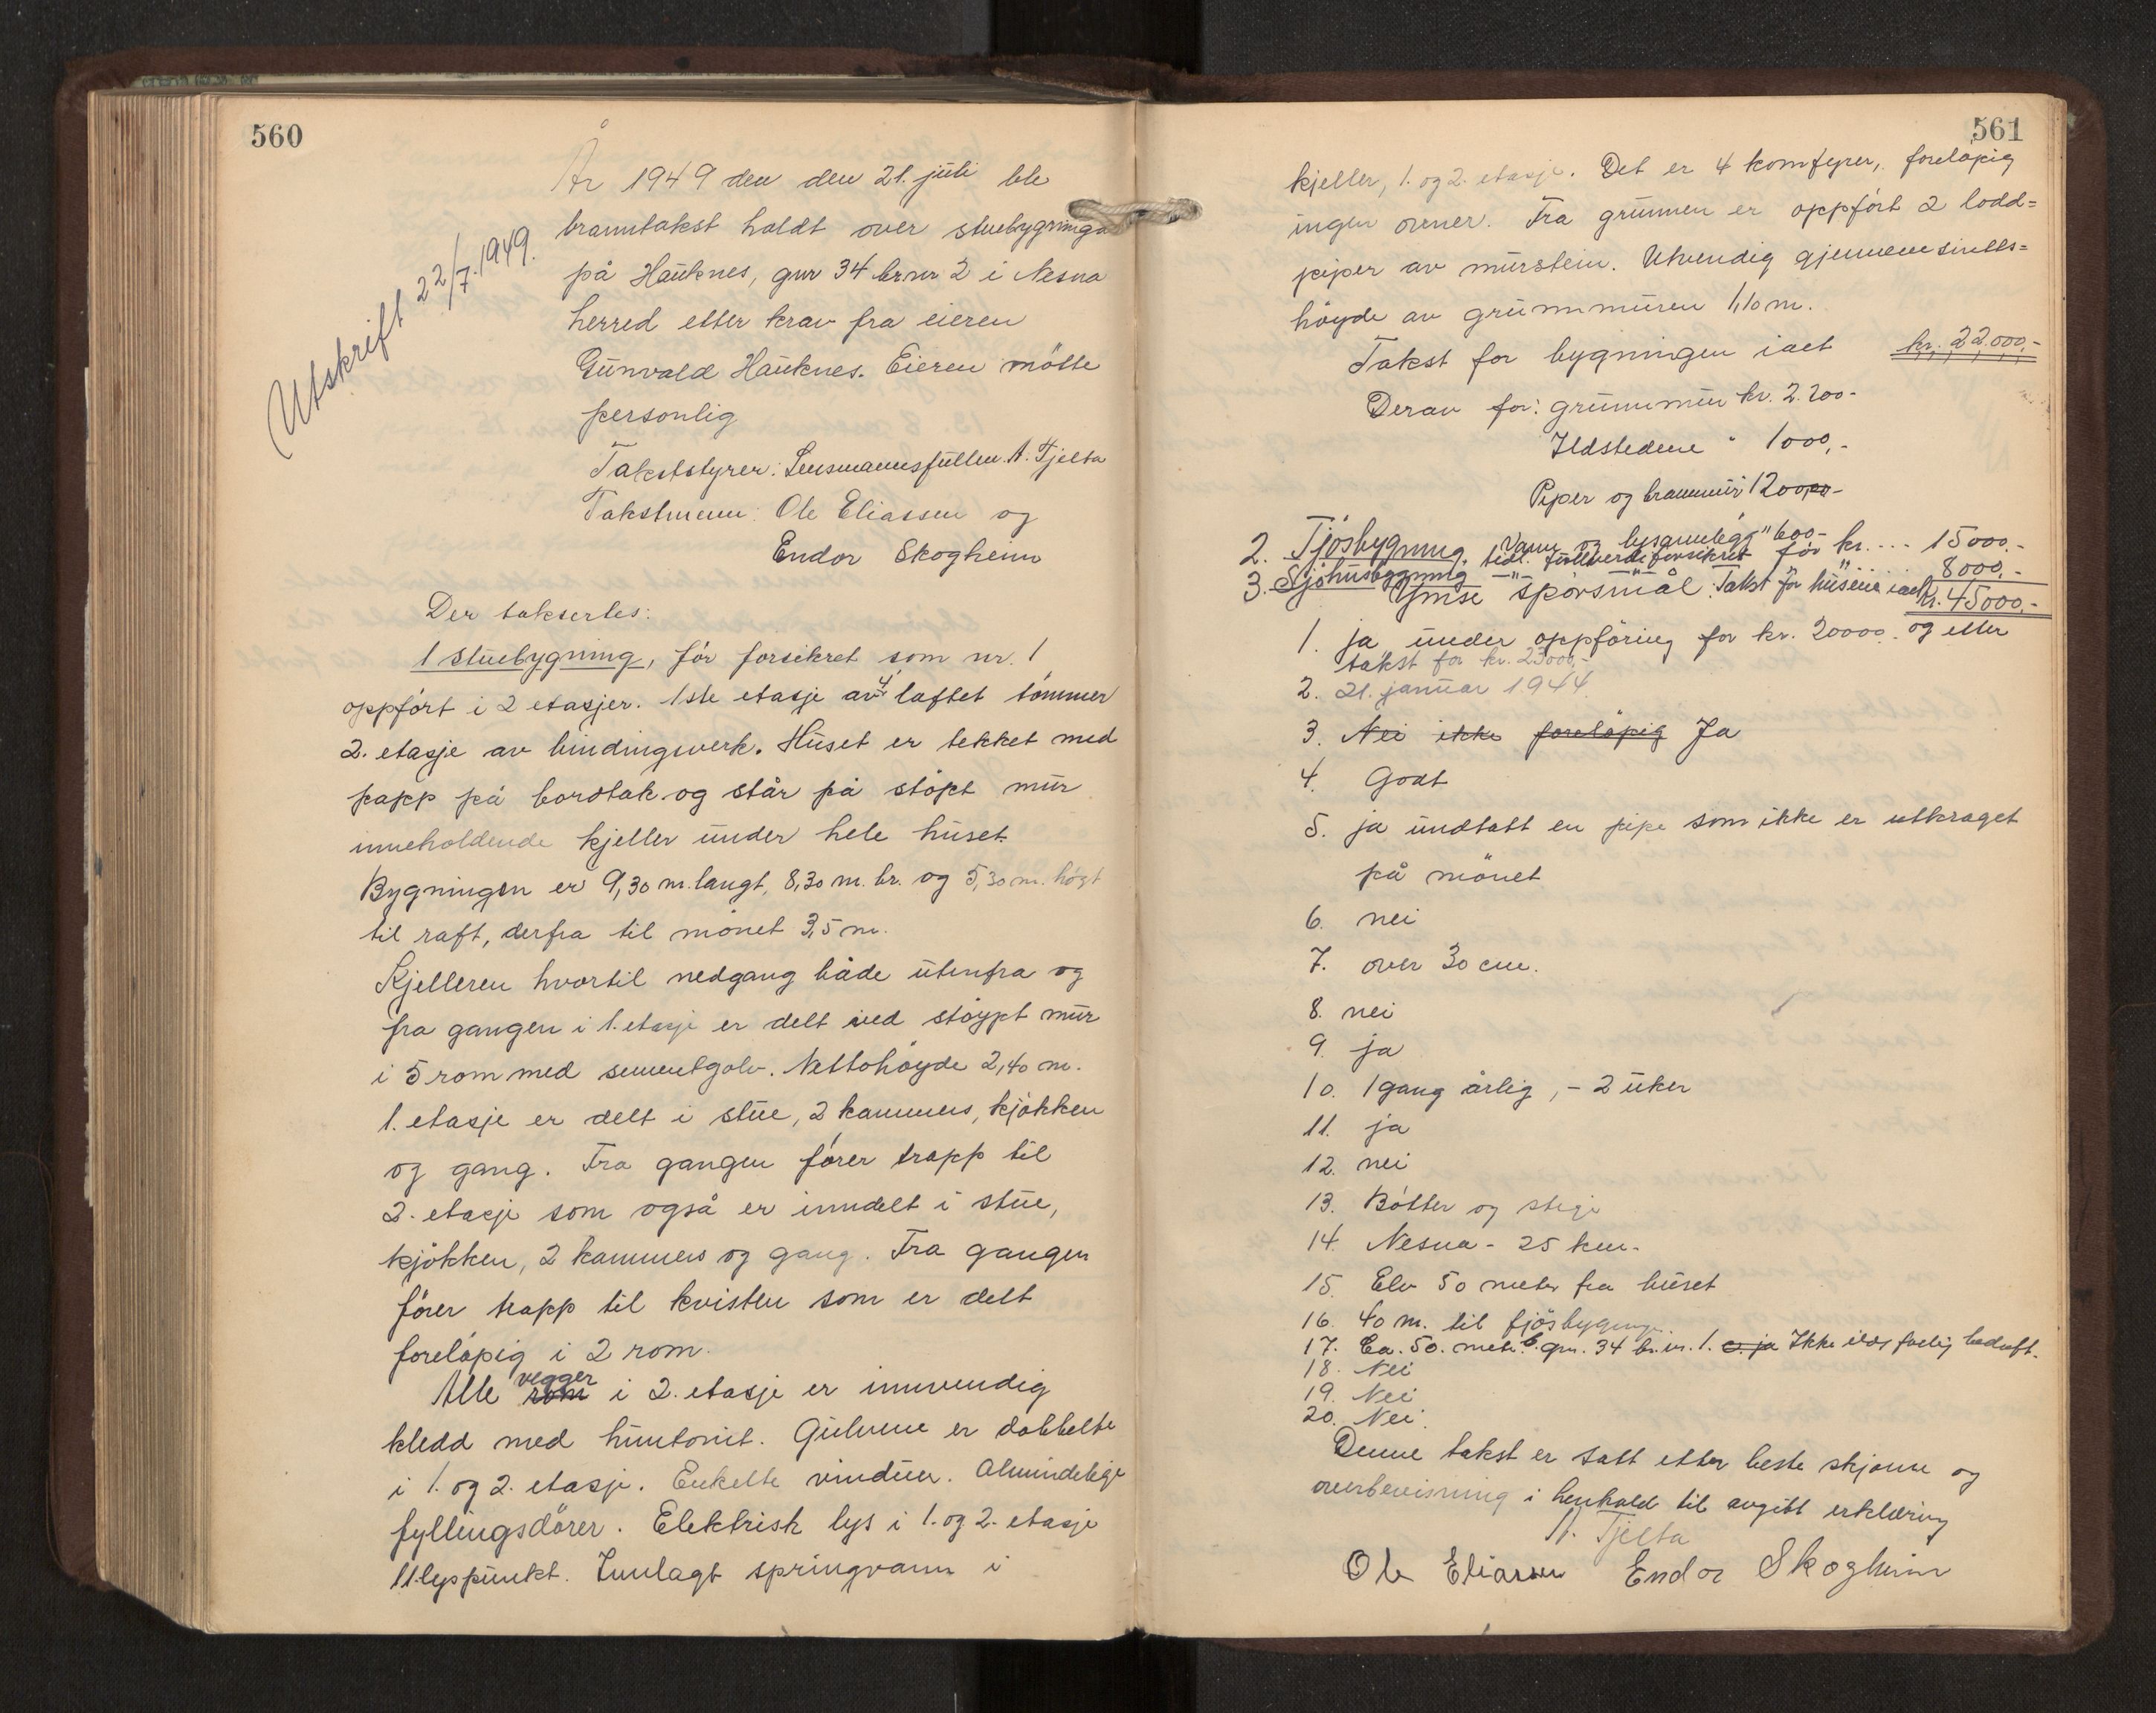 560
Utskrift 22/7. 1949.
År 1949 den den 21. juli ble
branntakst holdt over stuebygninga
på Hauknes, gnr 34 brnr 2 i Nesna
herred etter krav fra eieren
Gunvald Hauknes. Eieren møtte
personlig
Takststyrer: Lensmannsfullm. A. Tjelta
Takstmenn: Ole Eliassen og
Endor Skogheim
Der taksertes:
1 Stuebygning, før forsikret som nr. 1
oppført i 2 etasjer. 1ste etasje av 4" laftet tømmer
2. etasje av bindingsverk. Huset er tekket med
papp på bordtak og står på støpt mur
inneholdende kjeller under hele huset.
Bygningen er 9,30 m. langt, 8,30 m. br. og 5,30 m. høgt
til raft, derfra til mønet 3,5 m.
Kjelleren hvortil nedgang både utenfra og
fra gangen i 1. etasje er delt ved støypt mur
i 5 rom med sementgolv. Nettohøyde 2,40 m.
1. etasje er delt i stue, 2 kammers, kjøkken
og gang. Fra gangen fører trapp til
2. etasje som også er inndelt i stue,
kjøkken, 2 kammers og gang. Fra gangen
fører trapp til kvisten som er delt
foreløpig i 2 rom.
Alle rom vegger i 2. etasje er innvendig
kledd med huntonit. Gulvene er dobbelte
i 1. og 2. etasje. Enkelte vinduer. Almindelige
fyllingsdører. Elektrisk lys i 1. og 2. etasje
11 lyspunkt. Innlagt springvann i
561
kjeller, 1. og 2. etasje. Det er 4 komfyrer, foreløpig
ingen ovner. Fra grunnen er oppført 2 lodd=
piper av murstein. Utvendig gjennemsnitts=
høyde av grunnmuren 1,10 m.
Takst for bygningen ialt kr. 22.000,-
Derav for: grunnmur kr. 2.200-
Ildstedene " 1000,-
Piper og brannmur 1200,00-
Vann og lysanlegg " 600,-
2. Fjøsbygning, tidl. fullverdiforsikret for kr. ... 15000,-
3. Sjøhusbygning " " " " 8000,-
Ymse spørsmål. Takst for husene ialt kr. 45000,-
1. ja under oppføring for kr. 20000. og etter
takst for kr. 23000,-
2. 21. januar 1944.
3. Nei ikke foreløpig Ja
4. Godt
5. ja undtatt en pipe som ikke er utkraget
på mønet
6. nei
7. over 30 cm.
8. nei
9. ja
10. 1 gang årlig, - 2 uker
11. ja
12. nei
13. Bøtter og stige
14. Nesna - 25 km.
15. Elv 50 meter fra huset
16. 40 m. til fjøsbygning.
17. Ca. 50. meter gnr. 34 br.nr. 1. Ikke ildsfarlig bedrift.
18. Nei
19. Nei
20. Nei.
Denne takst er satt etter beste skjønn og
overbevisning i henhold til avgitt erklæring
A. Tjelta
Ole Eliassen Endor Skogheim